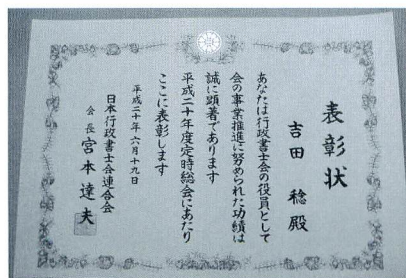 表彰状
吉田 稔殿
あなたは行政書士会の役員として
会の事業推進に努められた功績は
誠に顕著であります
平成二十年度定時総会にあたり
ここに表彰します
平成二十年六月十九日
日本行政書士会連合会
会長 宮本達夫